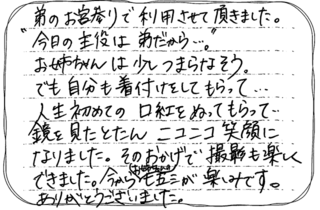 弟のお宮参りで利用させて頂きました。
"今日の主役は弟だから…。"
お姉ちゃんは少しつまらなそう。
でも自分も着付けをしてもらって…
人生初めての口紅をぬってもらって…
鏡を見たとたんニコニコ笑顔に
なりました。そのおかげで撮影も楽しく
できました。今から七五三が楽しみです。
ありがとうございました。